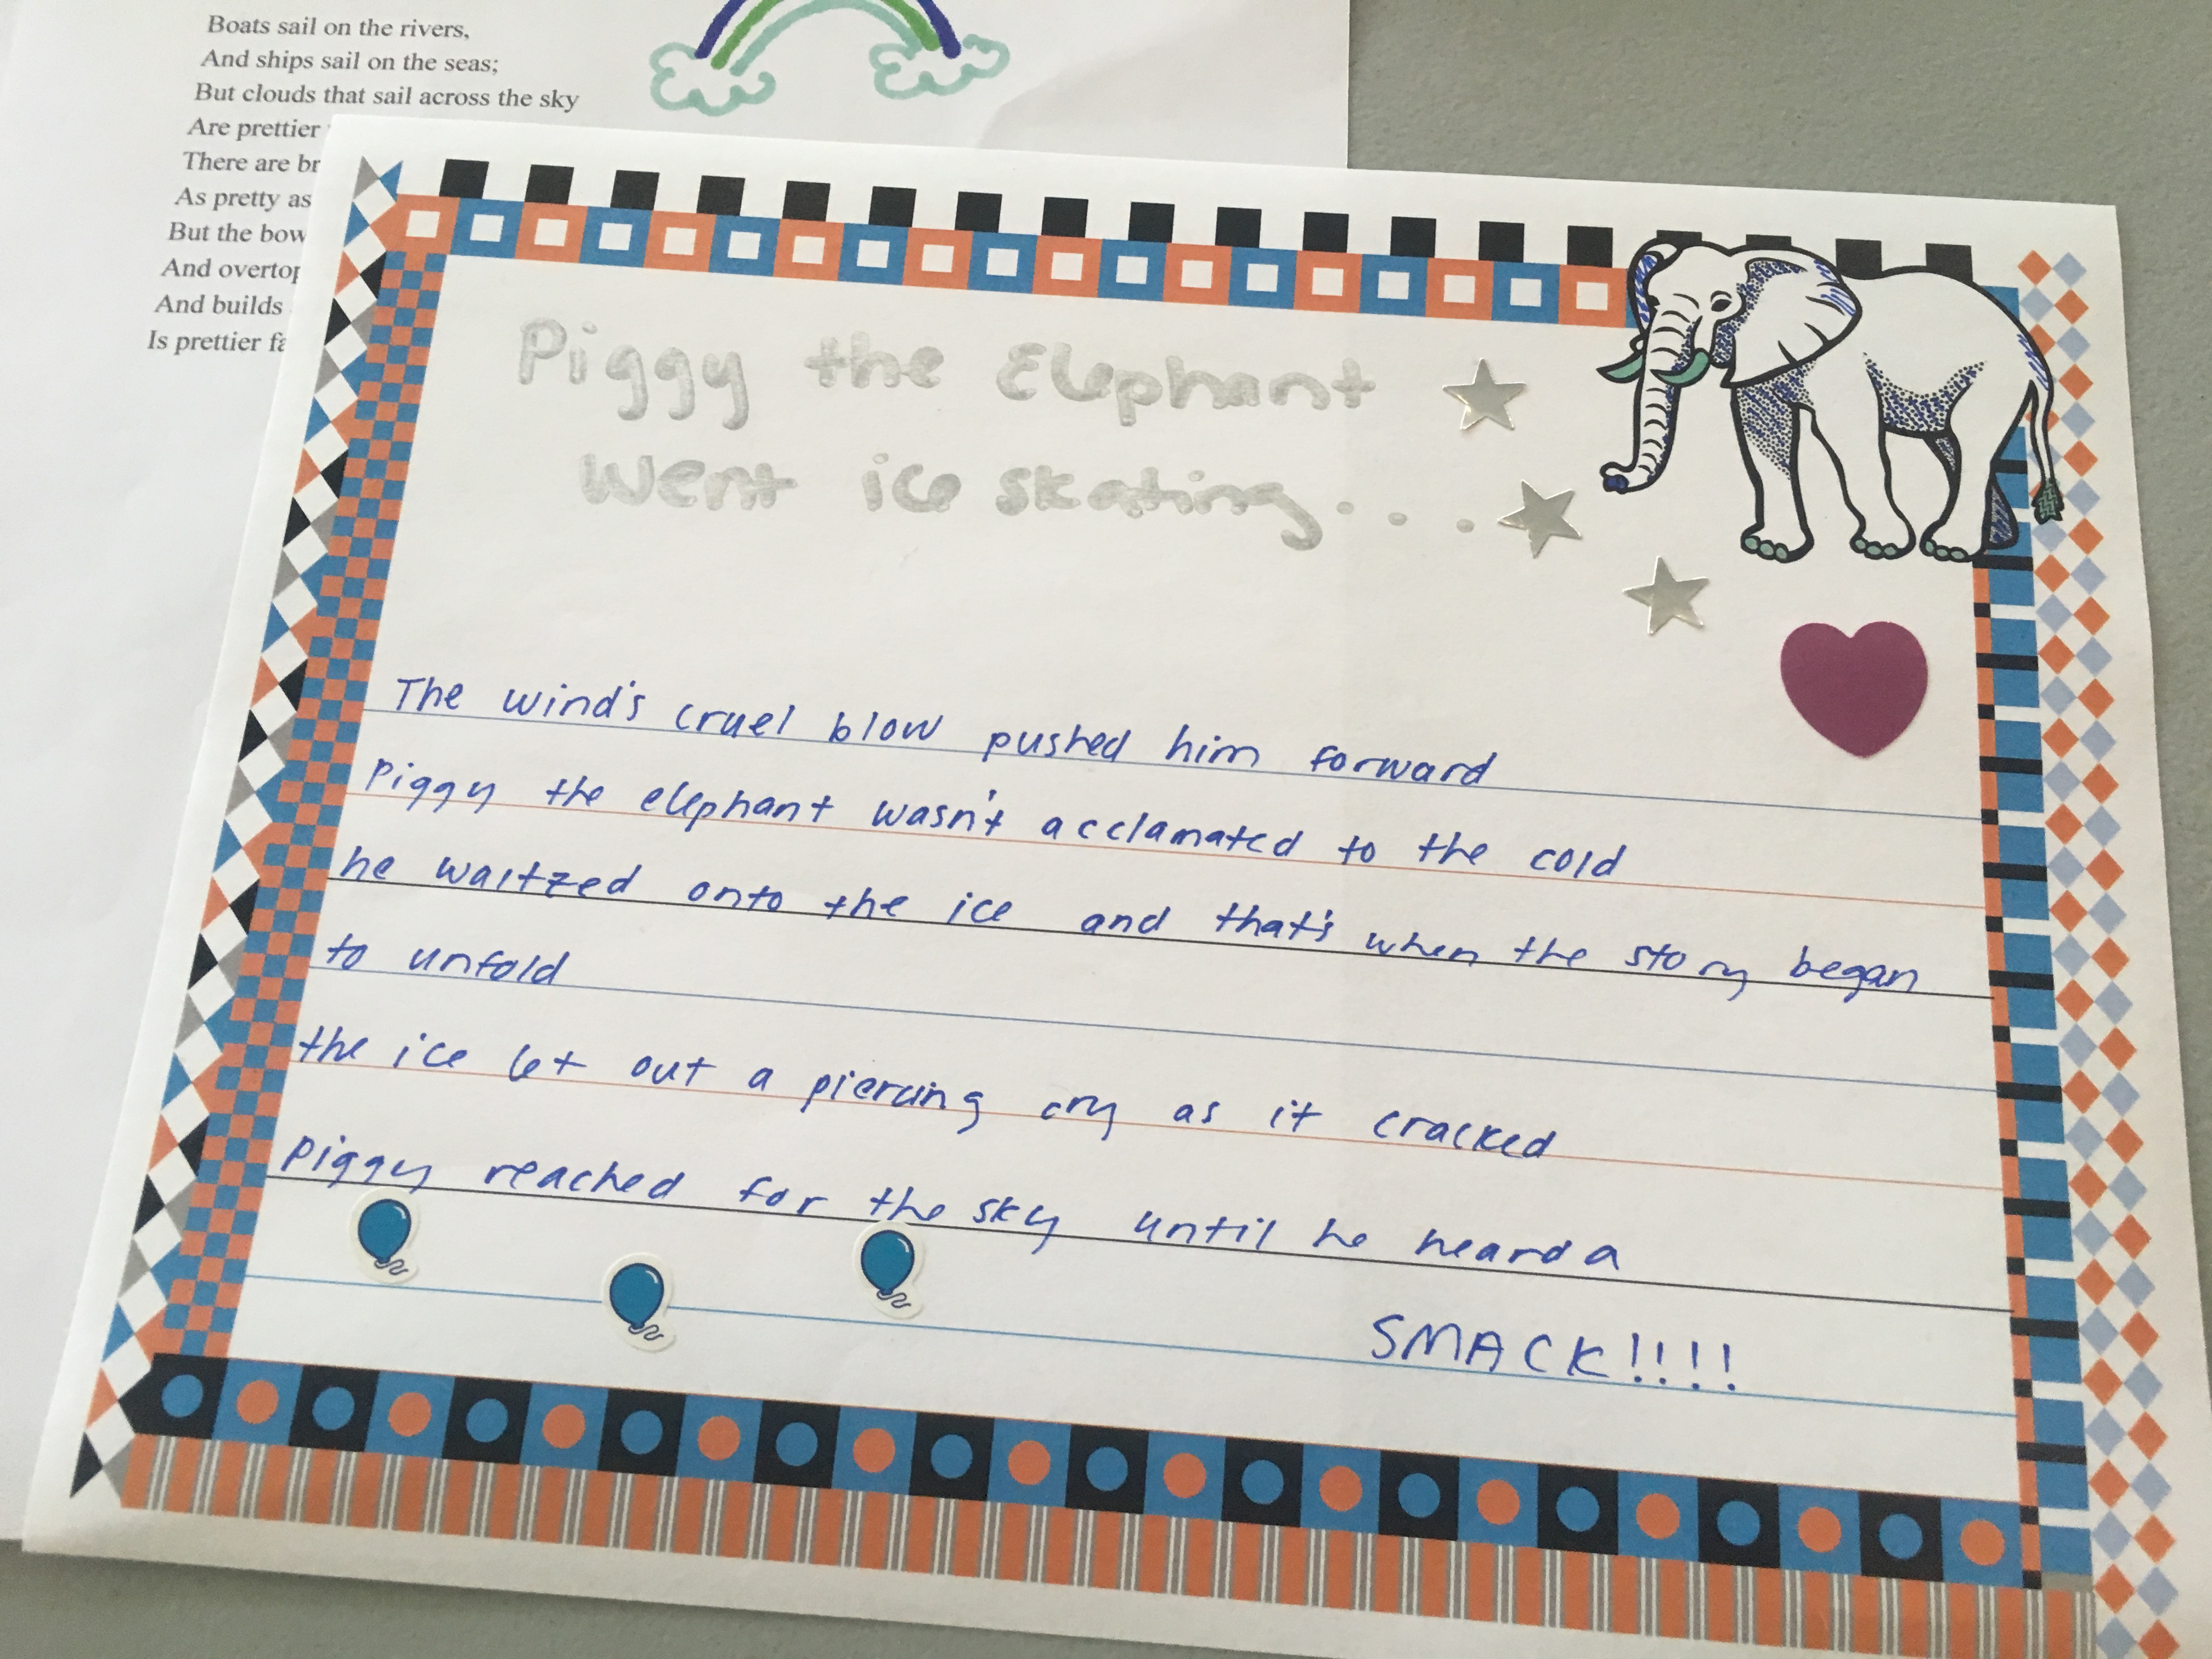 Boats sail on the rivers,
And ships sail on the seas;
But clouds that sail across the sky
Are prettier
There are br
As pretty as
But the bow
And overtop
And builds
Is prettier fa
Piggy the Elephant
went ice skating....
The wind's cruel blow pushed him forward
Piggy the elephant wasn't acclamated to the cold
he waltzed onto the ice and that's when the story began
to unfold
the ice let out a piercing cry as it cracked
Piggy reached for the sky until he heard a
SMACK!!!!